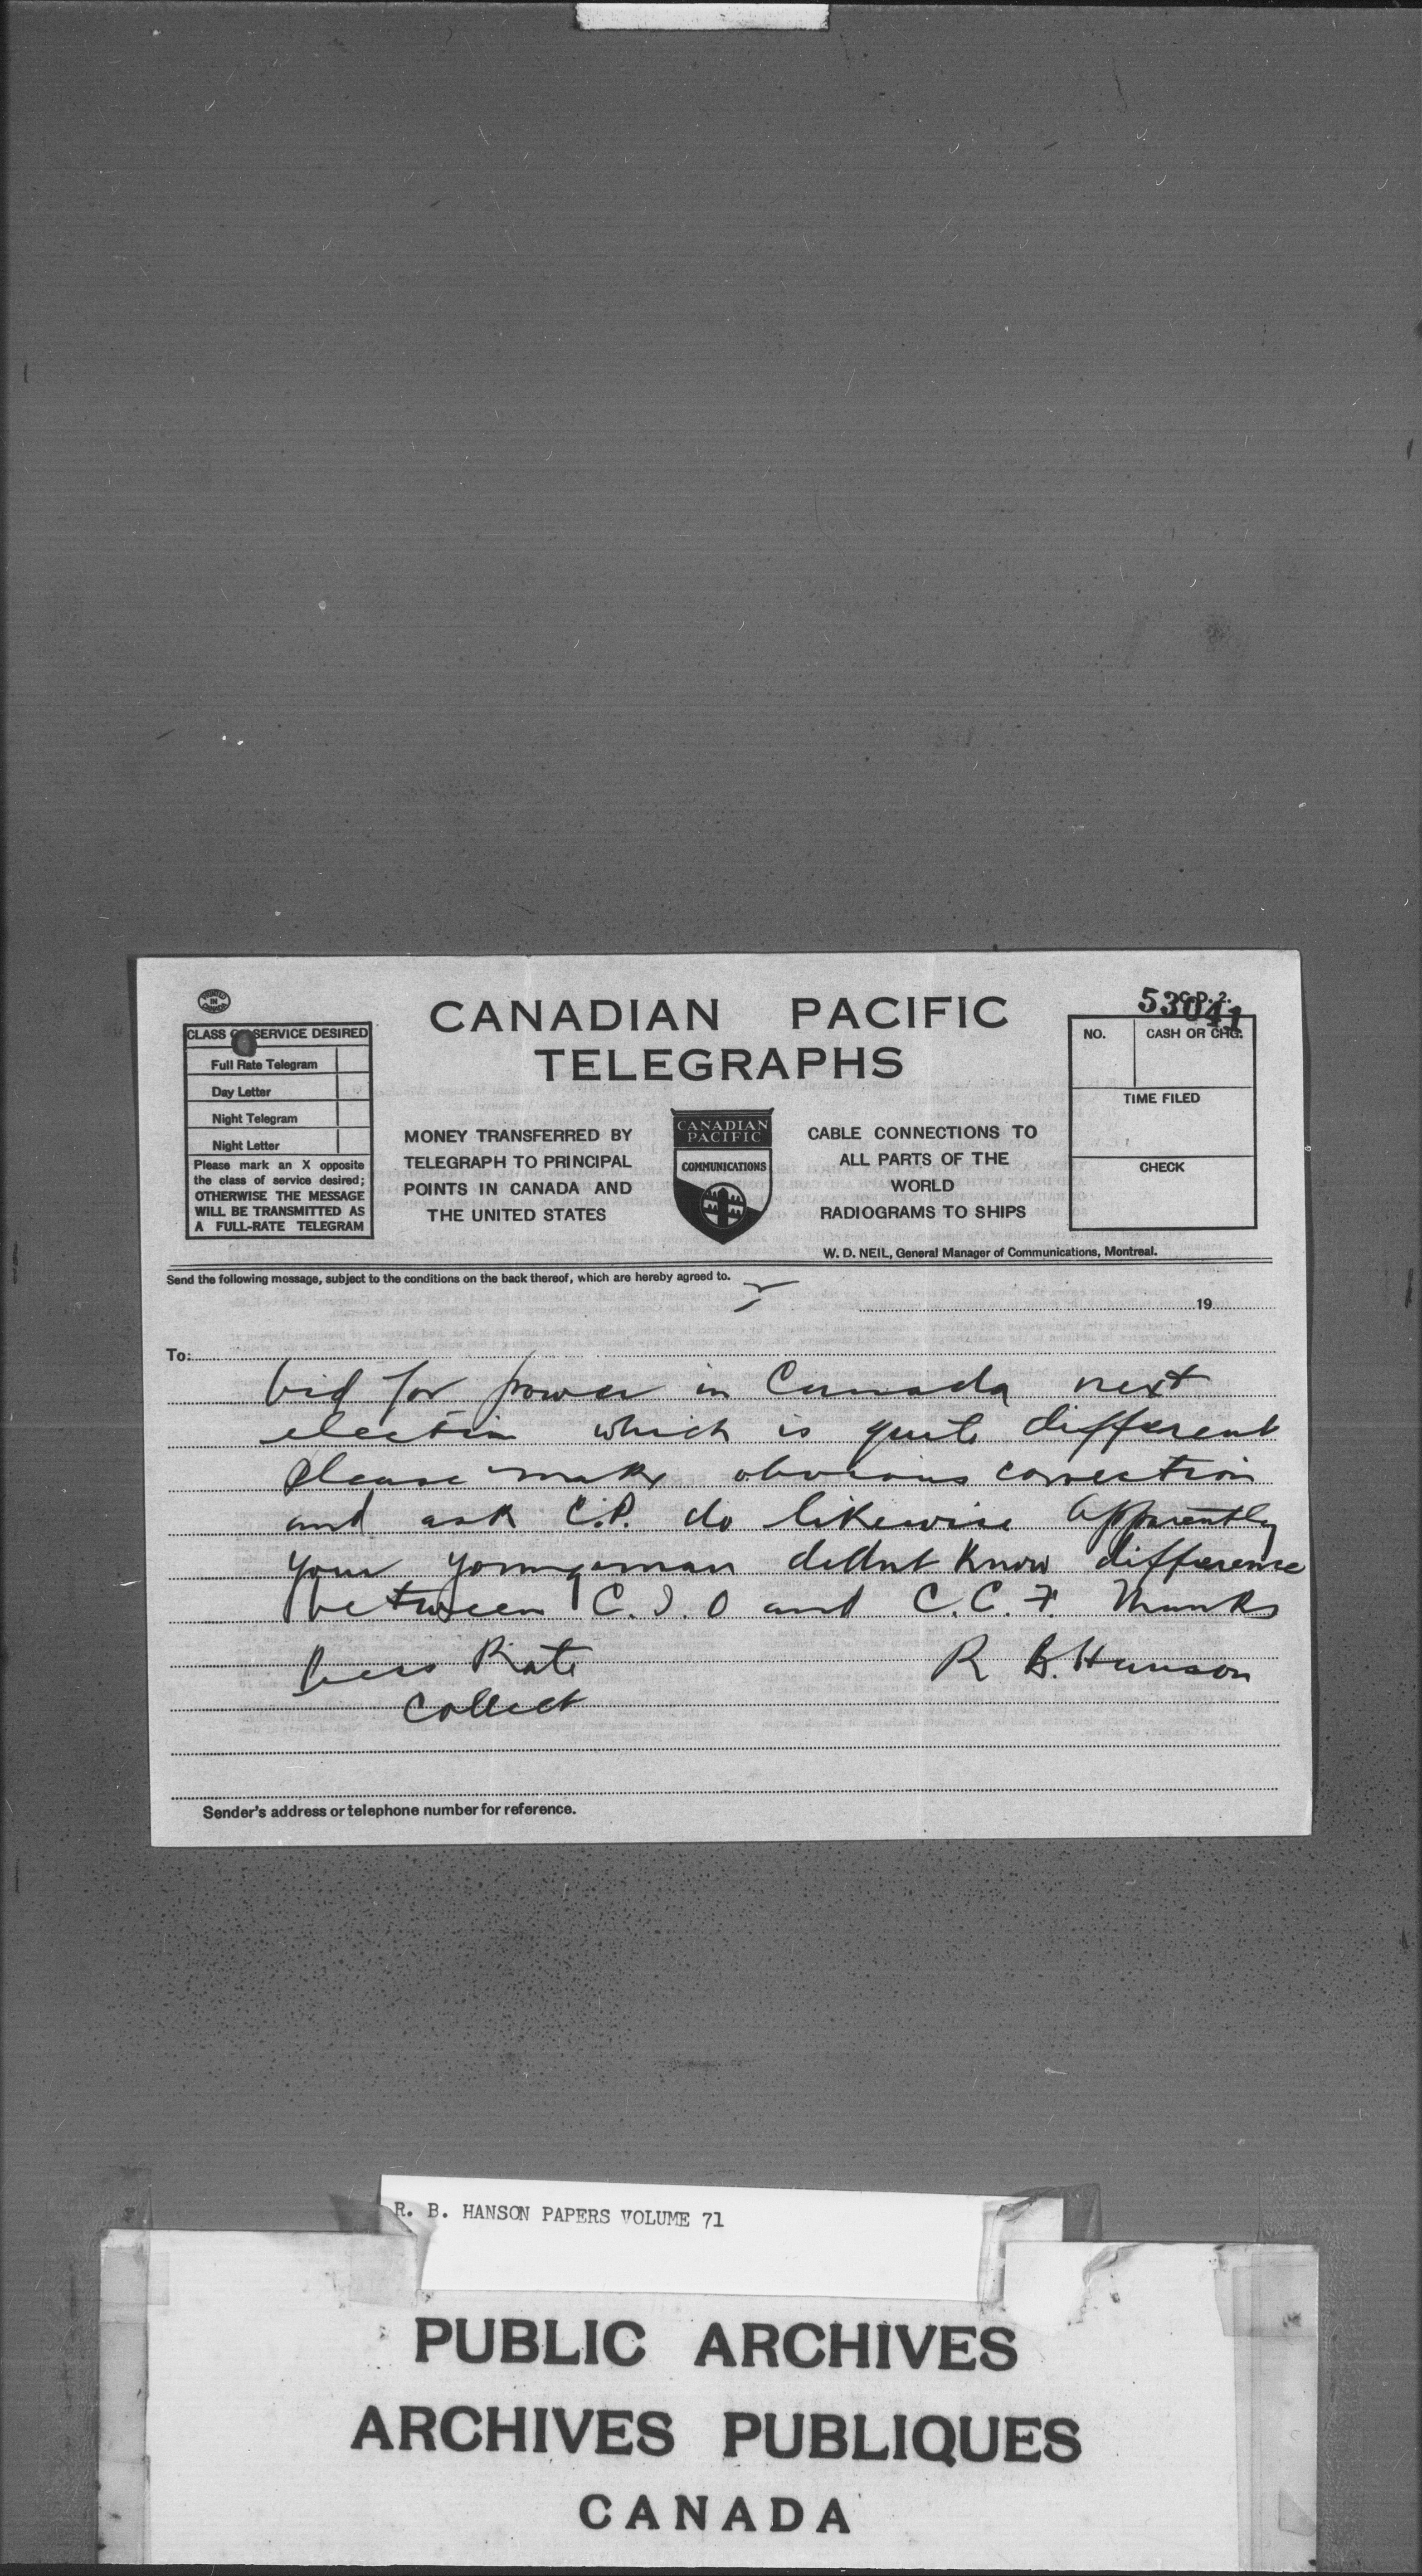 CANADIAN PACIFIC
TELEGRAPHS
53041
C.P. 2.
CLASS OF SERVICE DESIRED
Full Rate Telegram
Day Letter
Night Telegram
Night Letter
Please mark an X opposite
the class of service desired;
OTHERWISE THE MESSAGE
WILL BE TRANSMITTED AS
A FULL-RATE TELEGRAM
MONEY TRANSFERRED BY
TELEGRAPH TO PRINCIPAL
POINTS IN CANADA AND
THE UNITED STATES
CANADIAN
PACIFIC
COMMUNICATIONS
CABLE CONNECTIONS TO
ALL PARTS OF THE
WORLD
RADIOGRAMS TO SHIPS
NO. CASH OR CHG.
TIME FILED
CHECK
W. D. NEIL, General Manager of Communications, Montreal.
Send the following message, subject to the conditions on the back thereof, which are hereby agreed to.
19
To:
bid for power in Canada next
election which is quite different
please make obvious correction
and ask C.P. do likewise apparently
your youngman didnt know difference
between C.I.O and C.C.F. Thanks
Press Rate R B. Hanson
Collect
Sender's address or telephone number for reference.
R. B. HANSON PAPERS VOLUME 71
PUBLIC ARCHIVES
ARCHIVES PUBLIQUES
CANADA